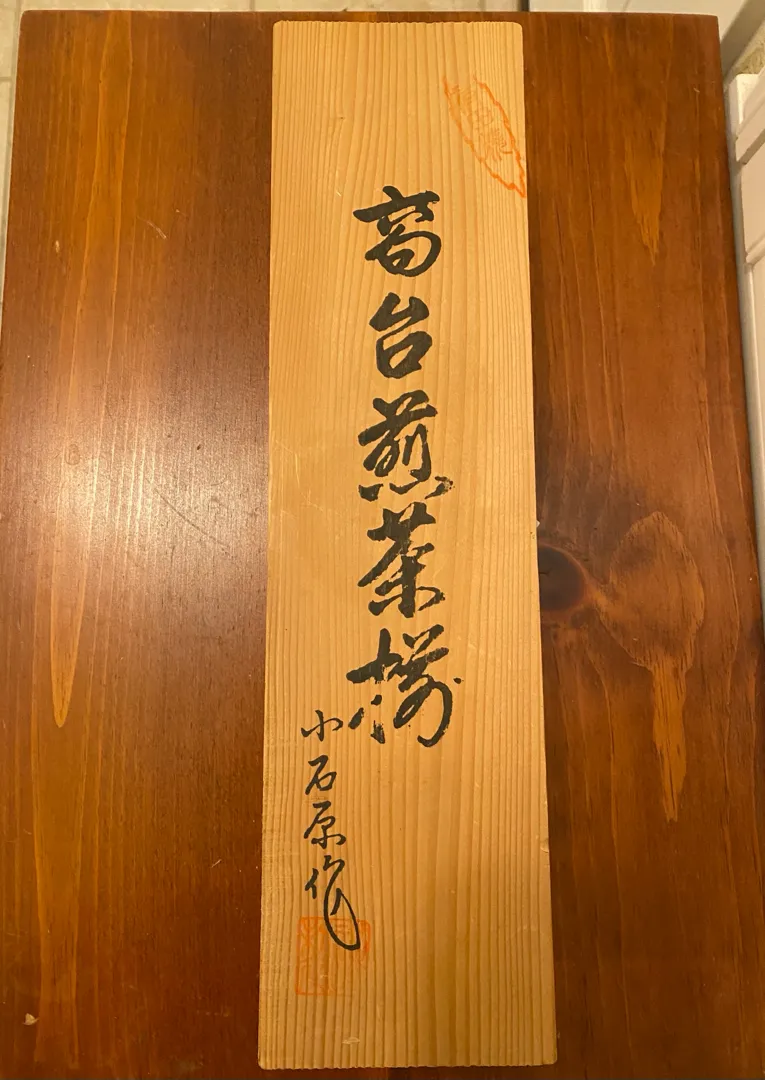 高台煎茶揃
小石原作